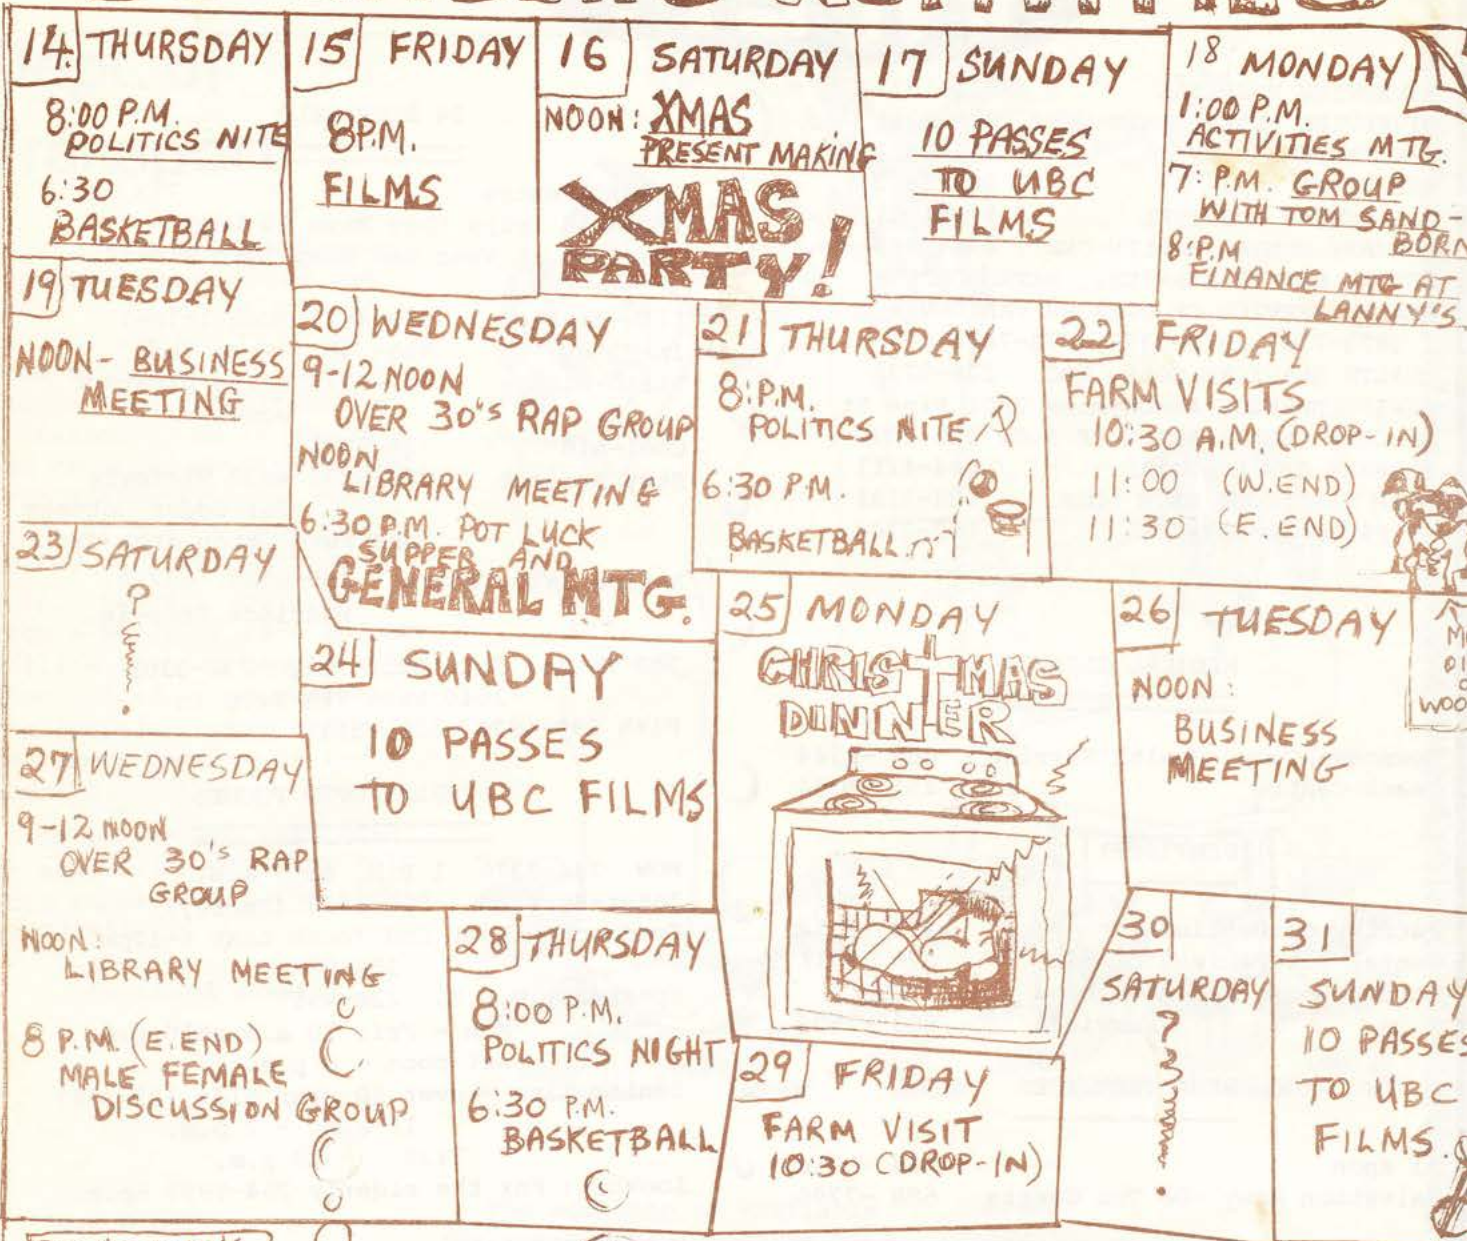 14. THURSDAY
8:00 P.M.
POLITICS NITE
6:30
BASKETBALL
15 FRIDAY
8P.M.
FILMS
16 SATURDAY
NOON: XMAS
PRESENT MAKING
XMAS
PARTY!
17 SUNDAY
10 PASSES
TO UBC
FILMS
18 MONDAY
1:00 P.M.
ACTIVITIES MTG.
7: P.M. GROUP
WITH TOM SAND-
BORN
8:P.M
FINANCE MTG AT
LANNY'S
19 TUESDAY
NOON- BUSINESS
MEETING
20 WEDNESDAY
9-12 NOON
OVER 30's RAP GROUP
NOON
LIBRARY MEETING
6:30 P.M. POT LUCK
SUPPER AND
GENERAL MTG.
21 THURSDAY
8:P.M.
POLITICS NITE
6:30 P.M.
BASKETBALL
22 FRIDAY
FARM VISITS
10:30 A.M. (DROP-IN)
11:00 (W.END)
11:30 (E.END)
23 SATURDAY
?
24 SUNDAY
10 PASSES
TO UBC FILMS
25 MONDAY
CHRISTMAS
DINNER
26 TUESDAY
NOON:
BUSINESS
MEETING
27 WEDNESDAY
9-12 NOON
OVER 30's RAP
GROUP
NOON:
LIBRARY MEETING
8 P.M. (E.END)
MALE FEMALE
DISCUSSION GROUP
28 THURSDAY
8:00 P.M.
POLITICS NIGHT
6:30 P.M.
BASKETBALL
29 FRIDAY
FARM VISIT
10:30 (DROP-IN)
30
SATURDAY
?
31
SUNDAY
10 PASSES
TO UBC
FILMS.